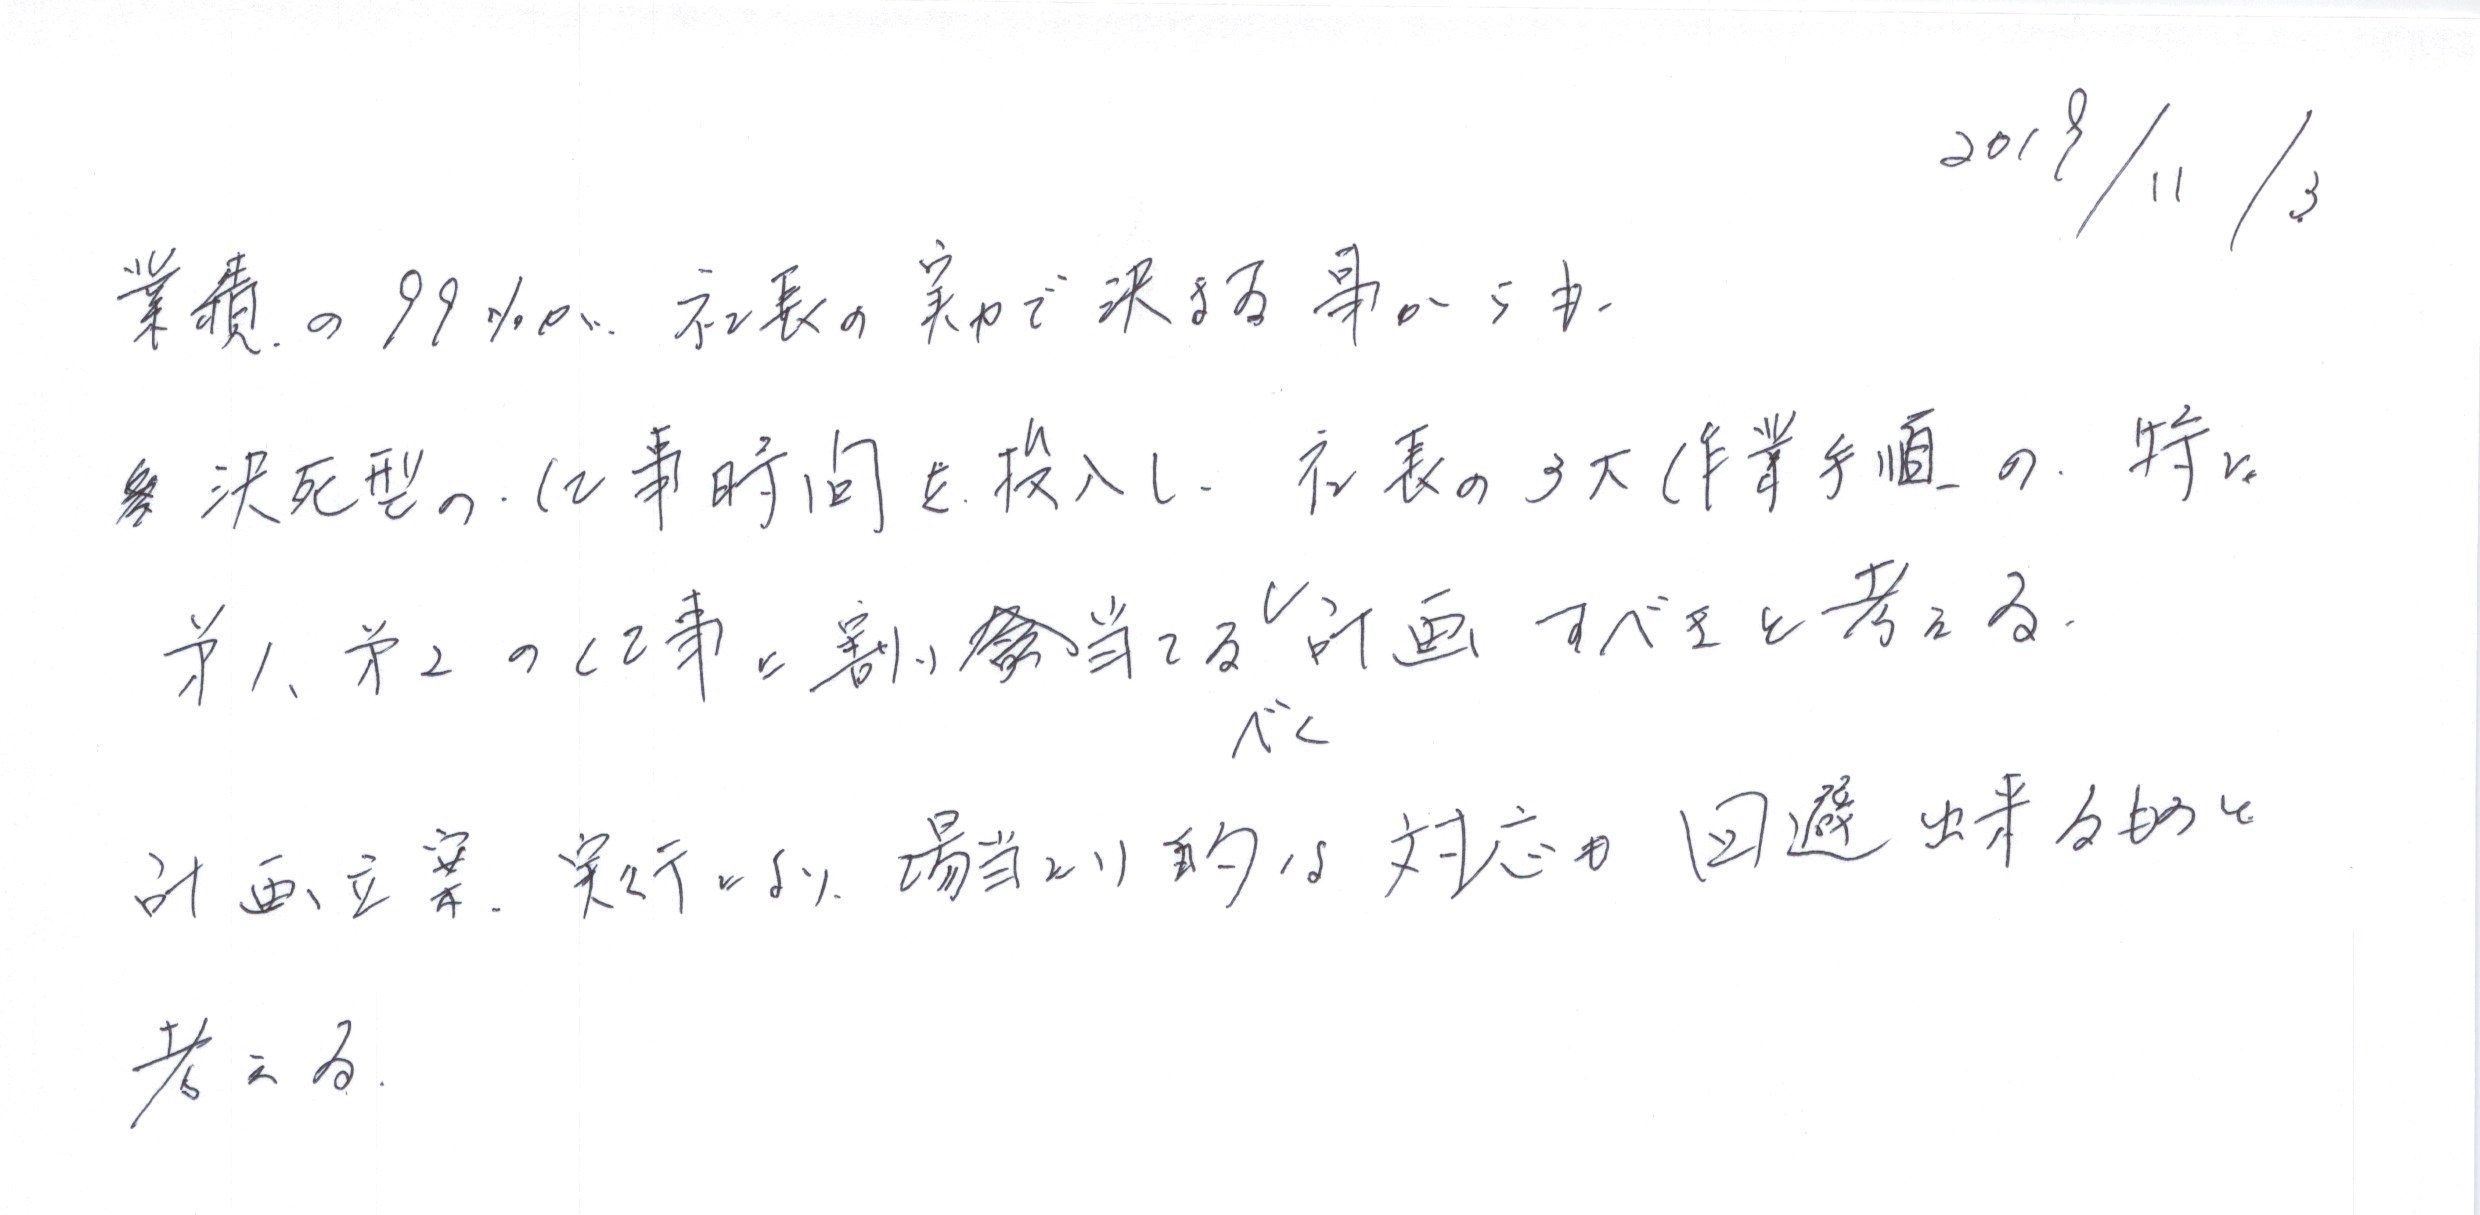 2019/11/3
業績の99%が、社長の実力で決まる事からも、
決死型の仕事時間を投入し、社長の3大作業手順の、特に
第1、第2の仕事に割り当てるべく計画すべきと考える。
計画立案、実行により、場当たり的な対応も回避出来るものと
考える。